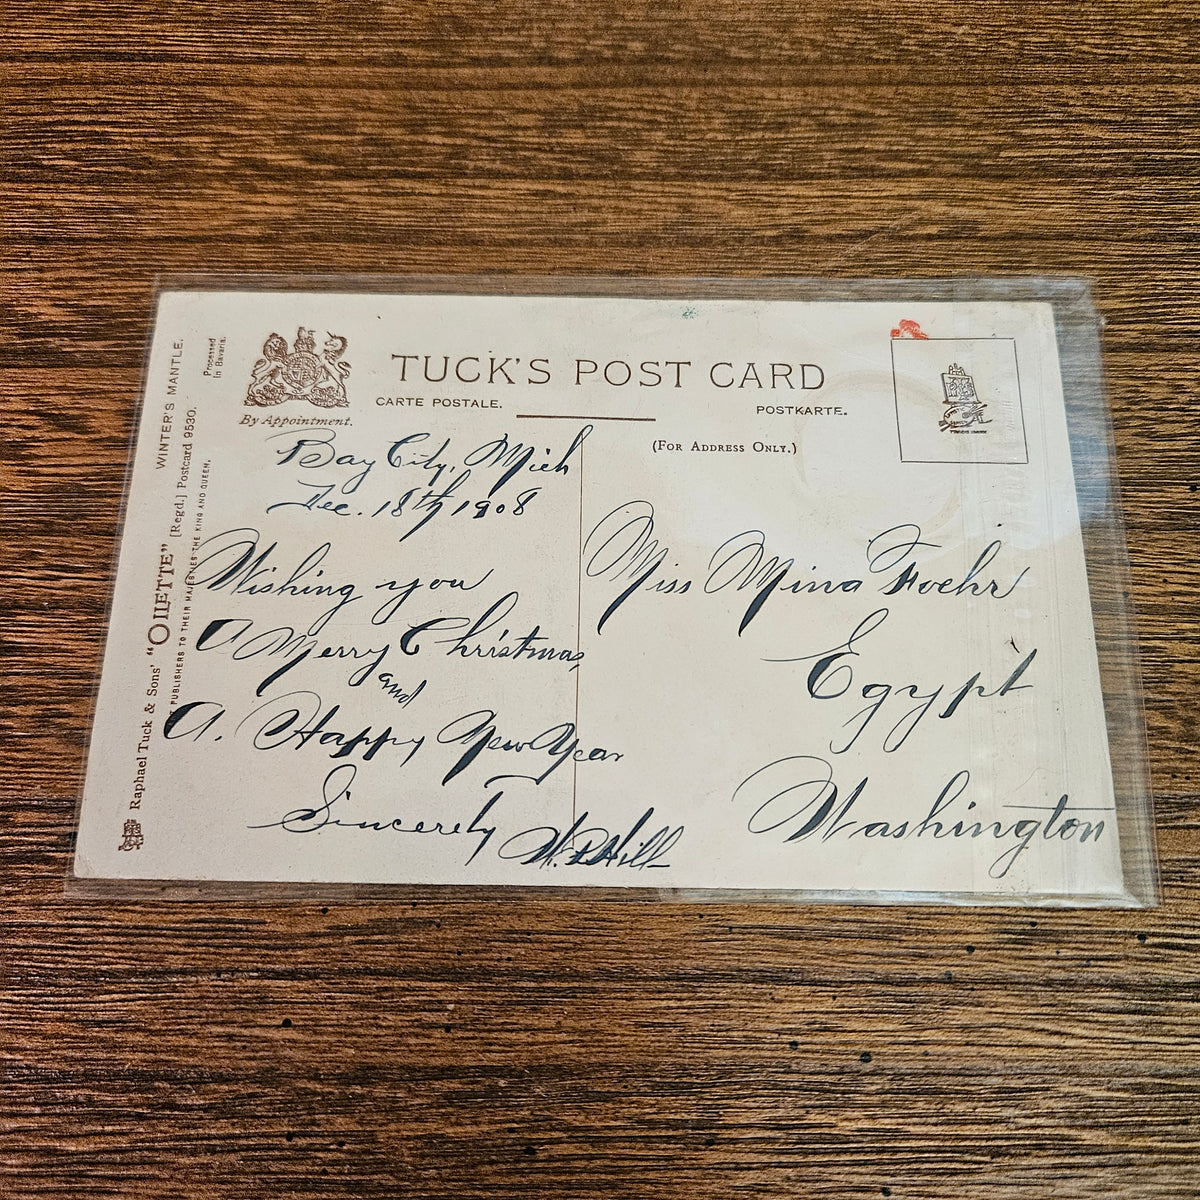 TUCK'S POST CARD
CARTE POSTALE.
POSTKARTE.
(FOR ADDRESS ONLY.)
By Appointment.
Bay City, Mich
Dec. 18th, 1908
Wishing you
A Merry Christmas,
and
A. Happy New Year
Sincerely
Hill
Miss Mina Foehr
Egypt
Washington
WINTER'S MANTLE.
Processed
In Bavaria.
Raphael Tuck & Sons' "OILETTE" [Regd.] Postcard 9530.
PUBLISHERS TO THEIR MAJESTIES THE KING AND QUEEN.